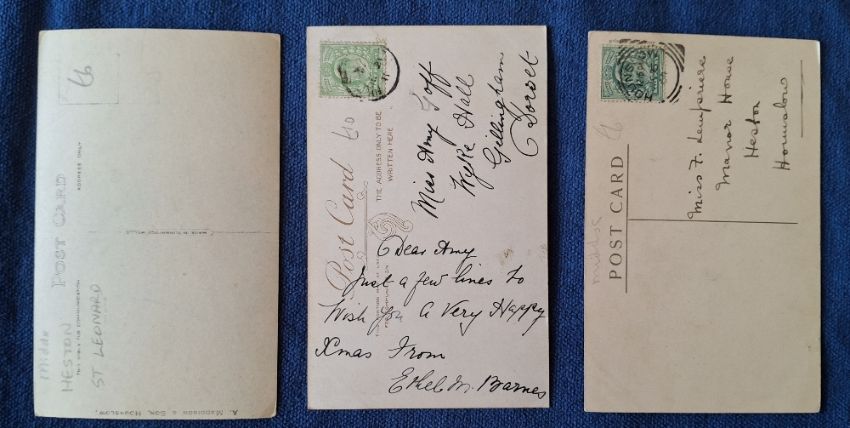 £6
POST CARD
ADDRESS ONLY
THIS SPACE FOR COMMUNICATION
MADE IN TUNBRIDGE WELLS
Middx
HESTON
ST LEONARD
A. MADDISON & SON, HOUNSLOW.
£10
Post Card
THE ADDRESS ONLY TO BE
WRITTEN HERE.
FOR COMMUNICATION
Miss Amy Goff
Wyke Hall
Gillingham
Dorset
Dear Amy
Just a few lines to
Wish you a Very Happy
Xmas From
Ethel M. Barnes
£6
POST CARD
Miss F. Lempriere
Manor House
Heston
Hounslow